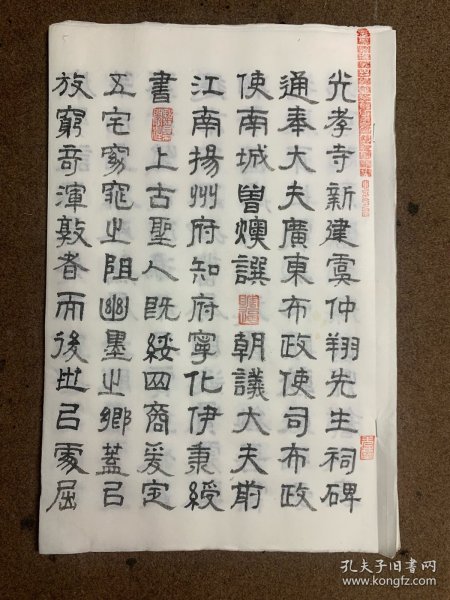 光孝寺新建虞仲翔先生祠碑
通奉大夫廣東布政使司布政
使南城曾燠譔朝議大夫前
江南揚州府知府寧化伊秉綬
書上古聖人既綏四裔爰定
五宅窮窕㞢阻幽墨㞢鄉蓋㠯
放窮奇渾敦者而後世㠯處屈
孔夫子旧书网
www.kongfz.com